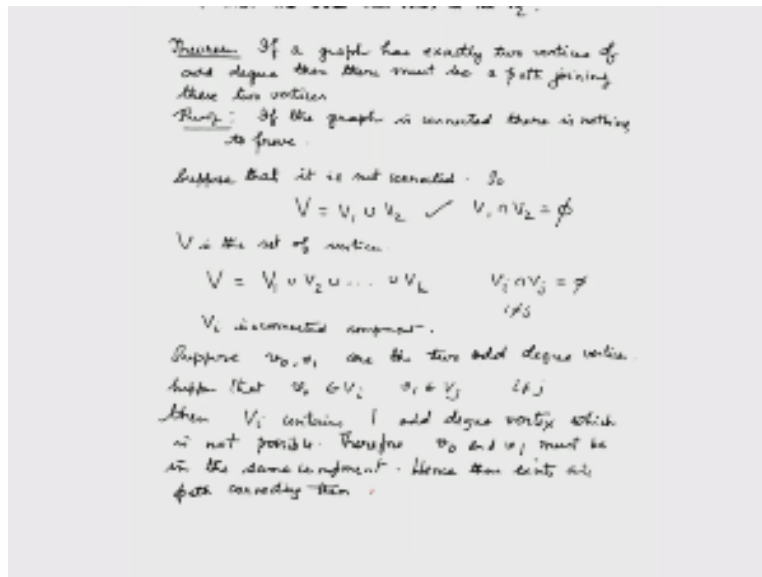 Theorem If a graph has exactly two vertices of
odd degree then there must be a path joining
these two vertices
Proof: If the graph is connected there is nothing
to prove.
Suppose that it is not connected. So
V = V₁ ∪ V₂ ✓ V₁ ∩ V₂ = φ
V is the set of vertices.
V = V₁ ∪ V₂ ∪ . . . . ∪ Vₖ Vᵢ ∩ Vⱼ = φ
i≠j
Vᵢ is connected component.
Suppose v₀, v₁ are the two odd degree vertices.
Suppose that v₀ ∈ Vᵢ v₁ ∈ Vⱼ i≠j
then Vᵢ contains 1 odd degree vertex which
is not possible. Therefore v₀ and v₁ must be
in the same component. Hence there exists a
path connecting them.